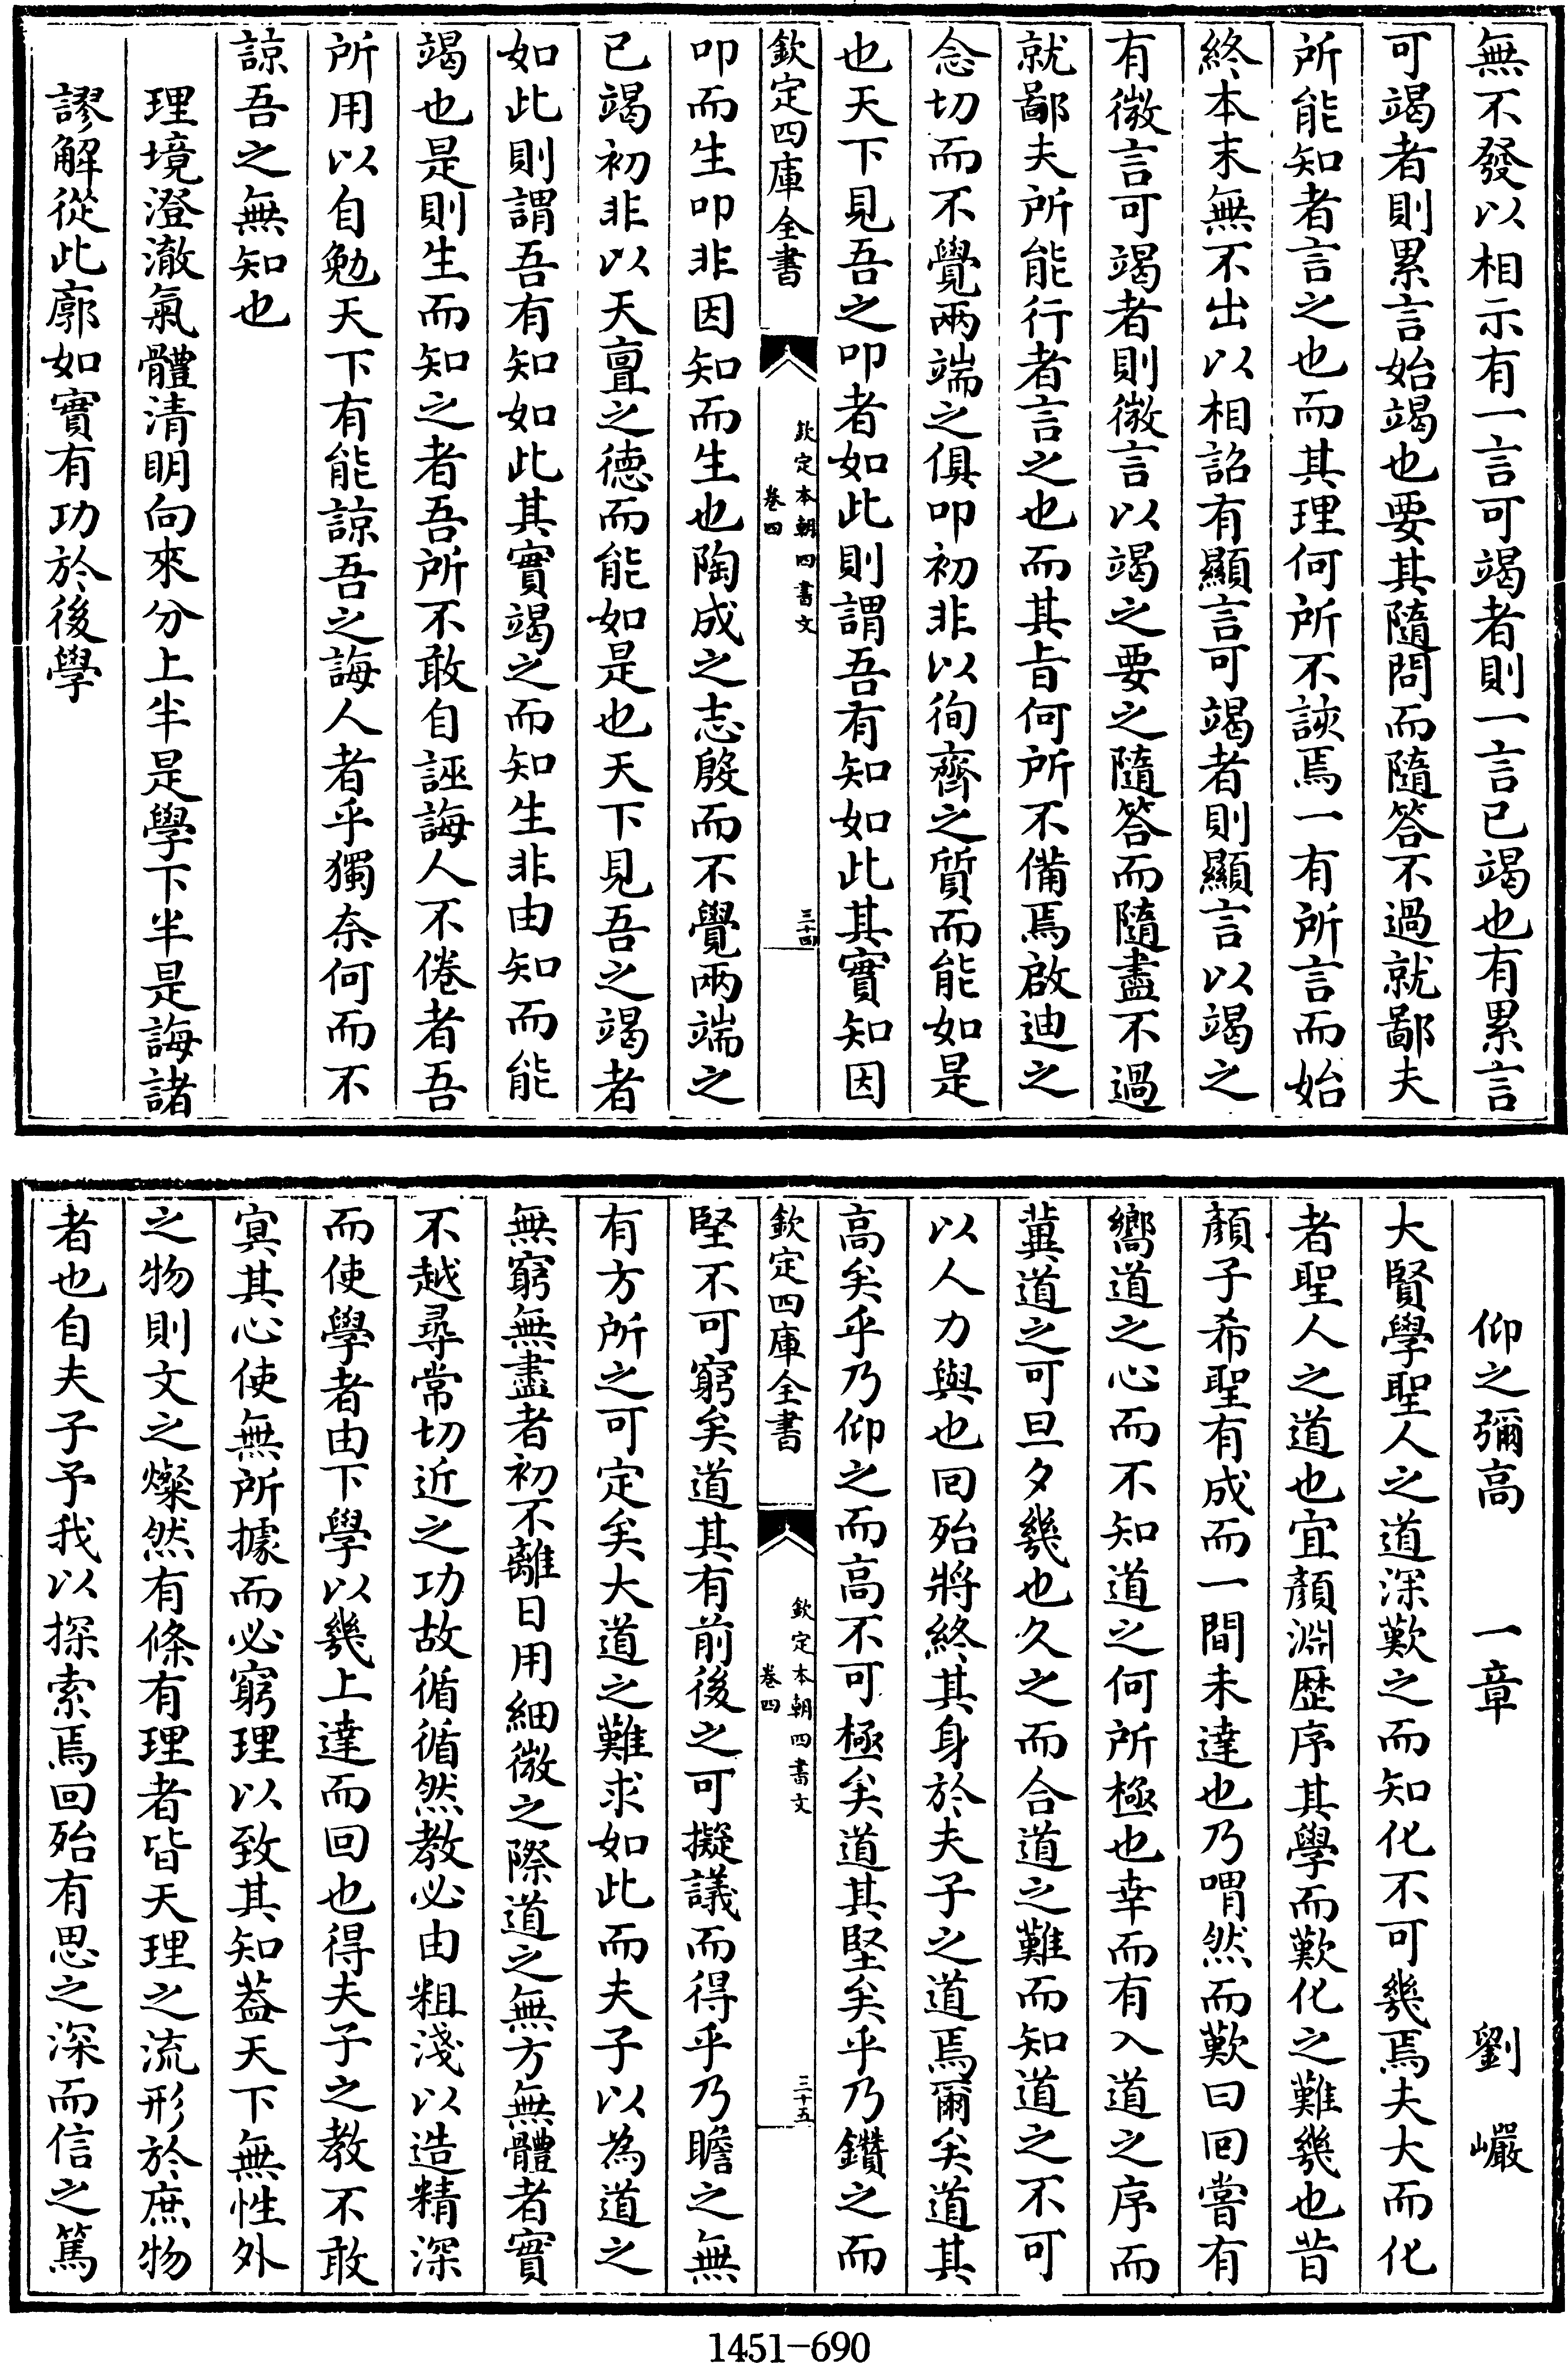 無不發以相示有一言可竭者則一言已竭也有累言
可竭者則累言始竭也要其隨問而隨答不過就鄙夫
所能知者言之也而其理何所不詼焉一有所言而始
終本末無不出以相詔有顯言可竭者則顯言以竭之
有微言可竭者則微言以竭之要之隨答而隨盡不過
就鄙夫所能行者言之也而其旨何所不備焉啟迪之
念切而不覺兩端之俱叩初非以徇齊之質而能如是
也天下見吾之叩者如此則謂吾有知如此其實知因
欽定四庫全書
欽定本朝四書文
卷四
三十四
叩而生叩非因知而生也陶成之志殷而不覺兩端之
已竭初非以天亶之德而能如是也天下見吾之竭者
如此則謂吾有知如此其實竭之而知生非由知而能
竭也是則生而知之者吾所不敢自誣誨人不倦者吾
所用以自勉天下有能諒吾之誨人者乎獨奈何而不
諒吾之無知也
理境澄澈氣體清明向來分上半是學下半是誨諸
謬解從此廓如實有功於後學
仰之彌高 一章 劉巖
大賢學聖人之道深歎之而知化不可幾焉夫大而化
者聖人之道也宜顏淵歷序其學而歎化之難幾也昔
顏子希聖有成而一間未達也乃喟然而歎曰回嘗有
嚮道之心而不知道之何所極也幸而有入道之序而
冀道之可旦夕幾也久之而合道之難而知道之不可
以人力與也回殆將終其身於夫子之道焉爾矣道其
高矣乎乃仰之而高不可極矣道其堅矣乎乃鑽之而
欽定四庫全書
欽定本朝四書文
卷四
三十五
堅不可窮矣道其有前後之可擬議而得乎乃瞻之無
有方所之可定矣大道之難求如此而夫子以為道之
無窮無盡者初不離日用細微之際道之無方無體者實
不越尋常切近之功故循循然教必由粗淺以造精深
而使學者由下學以幾上達而回也得夫子之教不敢
寘其心使無所據而必窮理以致其知葢天下無性外
之物則文之燦然有條有理者皆天理之流形於庶物
者也自夫子予我以探索焉回殆有思之深而信之篤
1451-690